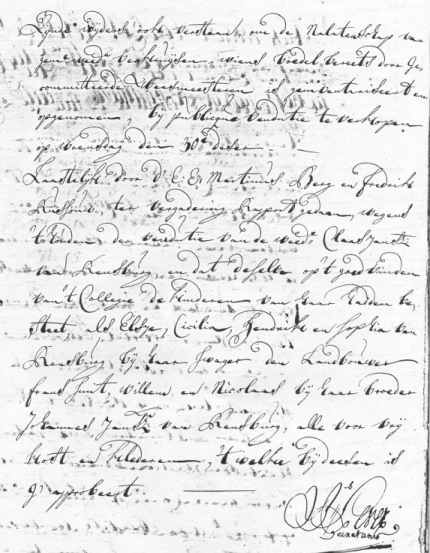 zijnde wyders ook verstaan om de Nalatenschap van
gem: wed: Verkuijsen, wiens boedel bereets door Ge
committeerde Weesmeesteren is geinventariseert en
opgenomen, bij publicque Vendutie te verkopen
op woensdag den 30e deser.
Laastelijk door d' E: En Martinus Berg en Fredrik
ter vergadering Rapport gedaan, wegens
't houden der vendutie van de wed: Claas Jansz:
van Rensburg, en dat deselve op 't goedvinden
van 't Collegie de kinderen van haar hadden be,
steet, als Elsje, Cicilia, Hendrik en Sophia van
Rensburg bij haar Swager den Landbouwer
frans Smit, willem en Nicolaas bij haar broeder
Johannes Jansz: van Rensburg, alle voor vrij
kost en klederen, 't welke bij deesen is
g'approbeert.
Secretaris